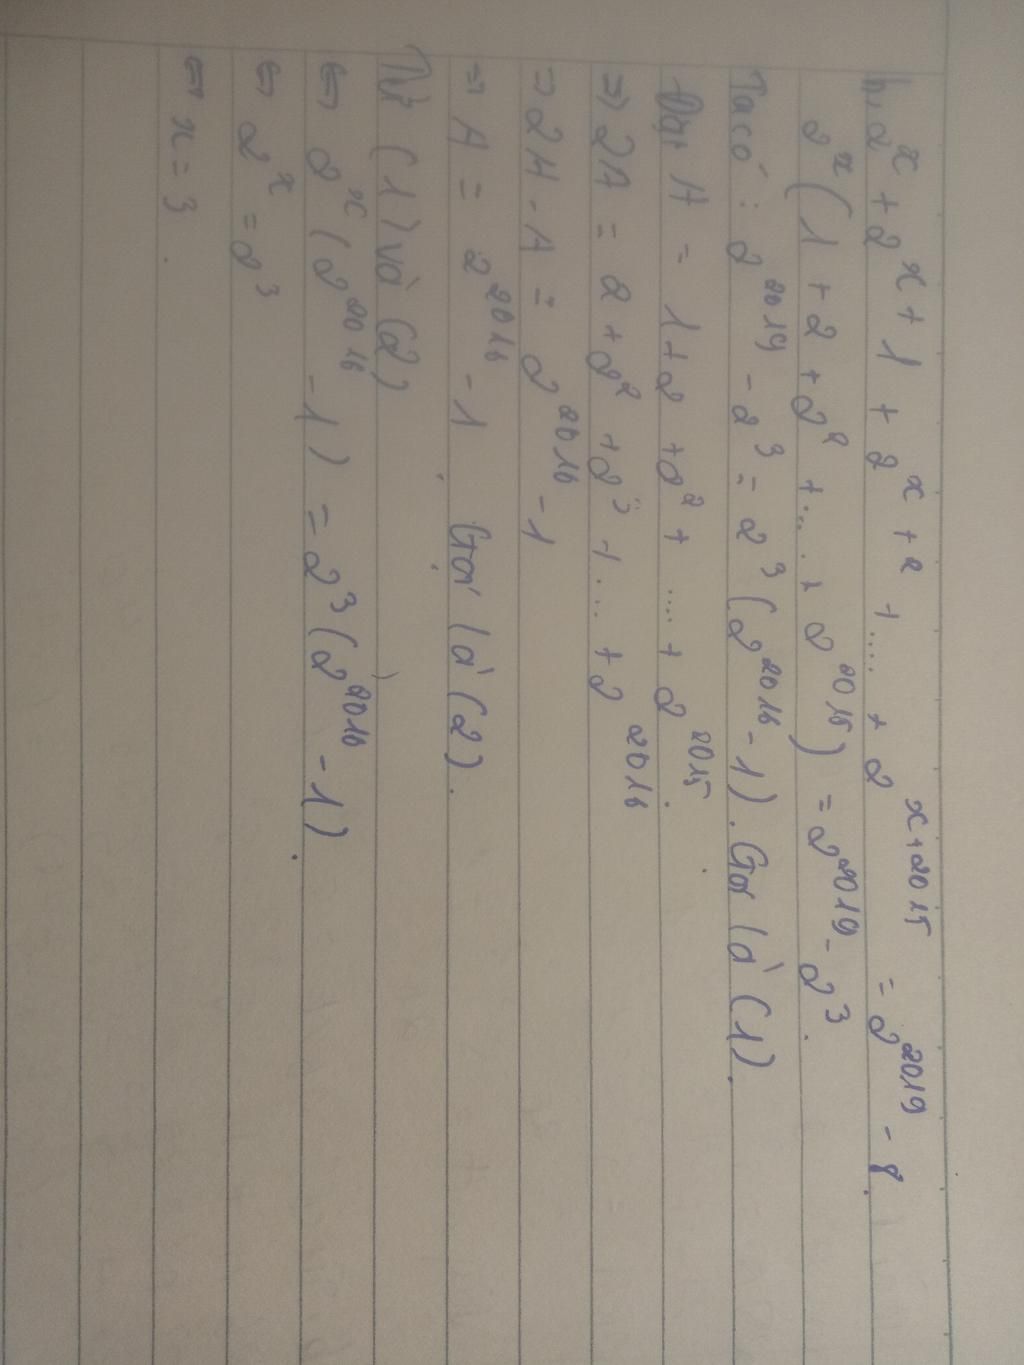 b, 2^x + 2^{x+1} + 2^{x+2} + .... + 2^{x+2015} = 2^{2019} - 8.
2^x (1 + 2 + 2^2 + ... + 2^{2015}) = 2^{2019} - 2^3.
Ta có : 2^{2019} - 2^3 = 2^3 (2^{2016} - 1). Gọi là (1).
Đặt A = 1 + 2 + 2^2 + .... + 2^{2015}.
=> 2A = 2 + 2^2 + 2^3 + .... + 2^{2016}
=> 2A - A = 2^{2016} - 1
=> A = 2^{2016} - 1 Gọi là (2).
Từ (1) và (2)
<=> 2^x (2^{2016} - 1) = 2^3 (2^{2016} - 1)
<=> 2^x = 2^3
<=> x = 3.